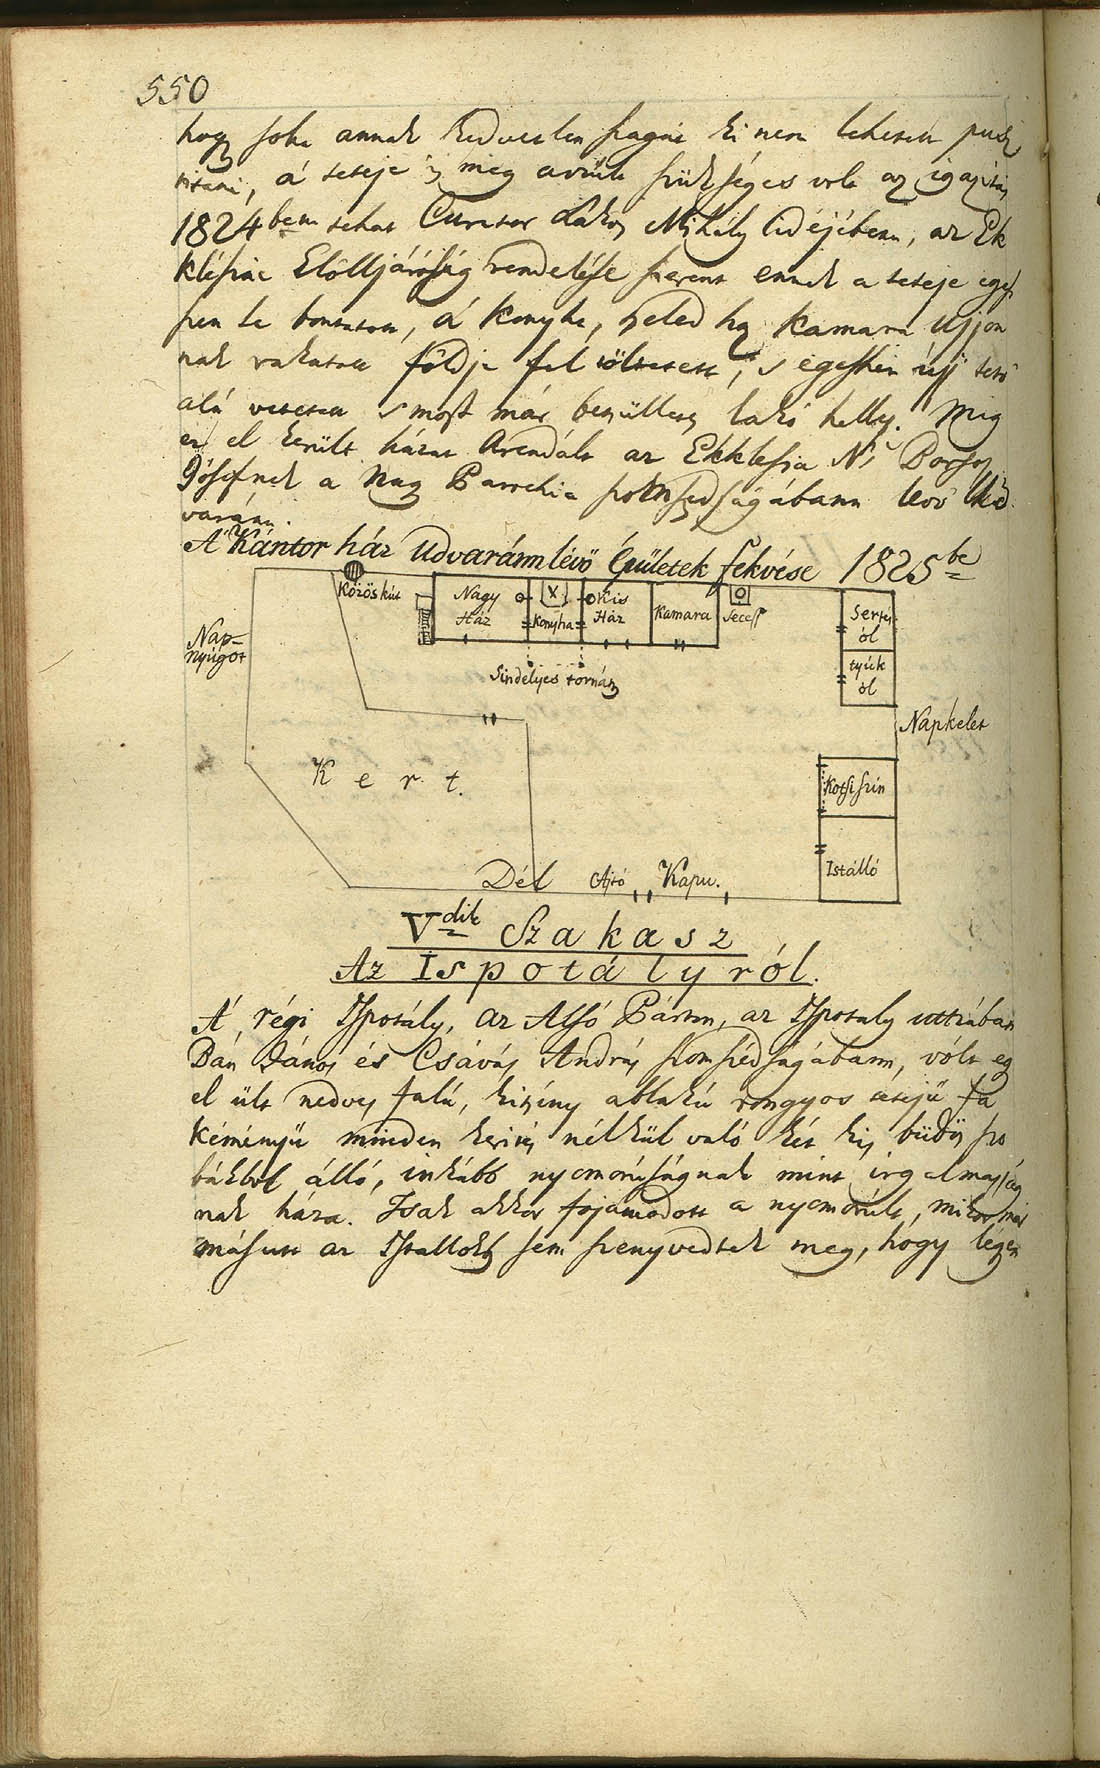 550
hogy soha annak kedvetlen szagát ki nem lehetett pusz
titani, á teteje is meg avúlt szükséges vólt az igazitás
1824benn tehát Curator Lakos Mihály idéjébenn, az Ek
klésiai Elölljáróság rendelése szerent ennek a teteje egés
szen le bontatott, á Konyha, Kamara Ujjon
nak rakatott földje fel töltetett, 's egésszen újj tető
alá vetetett 's most már betsülletes lakó helly. Mig
ez el került házat Arendált az Ekklesia Ns Borsos
Jósefnek a Nagy Parochia szomszédságábann levő
varánn.
A' Kántor ház Udvaránn lévő Épületek fekvése 1825be
Közös kút
Nagy Ház
X
Konyha
Kis Ház
Kamara
Secess
Sertés ól
tyúk ól
Nap-
nyúgot
Sindelyes tornátz
Napkelet
Kert.
Kotsi szin
Istálló
Dél Ajtó Kapu.
Vdik Szakasz
Az Ispotályról.
Á régi Ispotály, az Alsó Párton, az Ispotaly uttzában
Bán János és Csávás András szomszédságábann, vólt egy
el ült nedves falú, hitvány ablakú rongyos tetejű fa
kéményű minden kerités nélkül való két kis büdös szo
bákból álló, inkább nyomorúságnak mint irgalmasság
nak háza. Tsak akkor fojamodott a nyomorúlt, mikor már
másutt az Istállókb sem szenyvedték meg, hogy légen